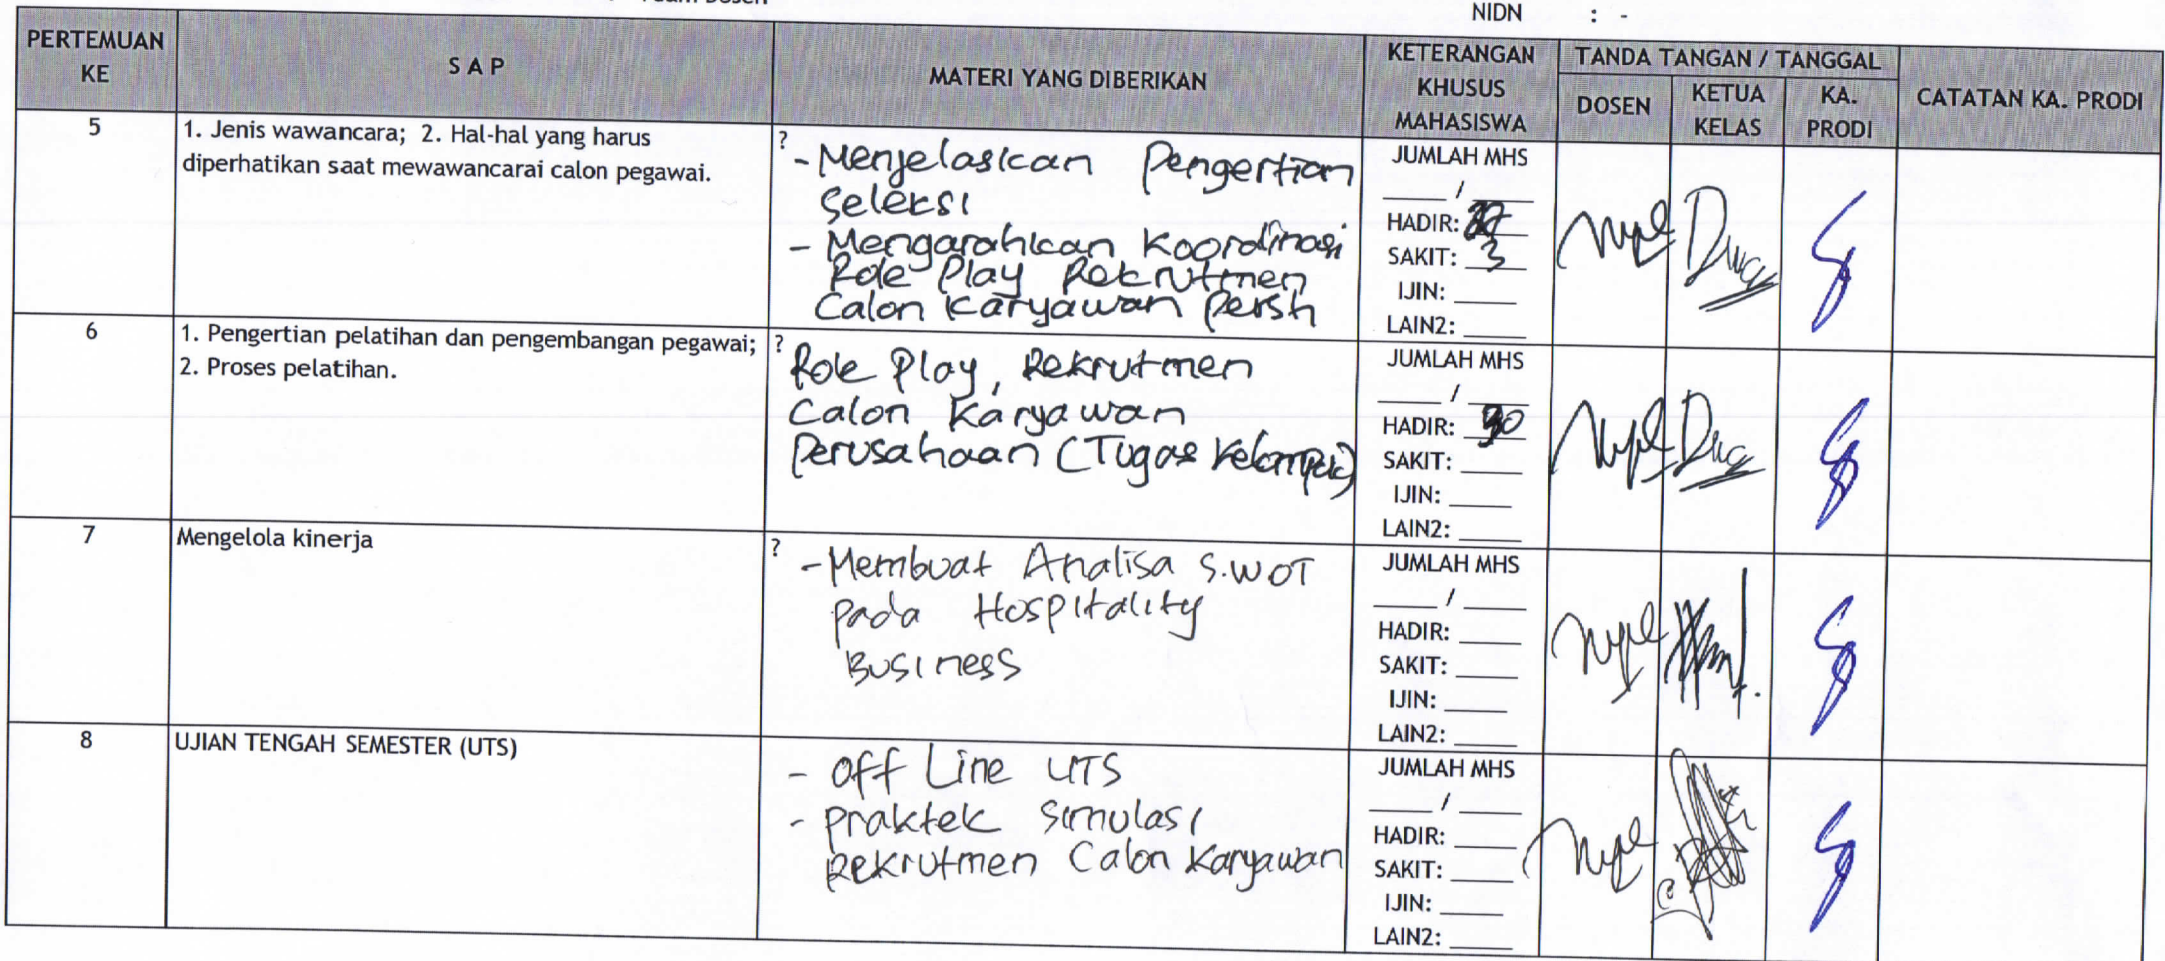 Team Dosen
NIDN : -
PERTEMUAN KE
S A P
MATERI YANG DIBERIKAN
KETERANGAN KHUSUS MAHASISWA
TANDA TANGAN / TANGGAL
DOSEN
KETUA KELAS
KA. PRODI
CATATAN KA. PRODI
5
1. Jenis wawancara; 2. Hal-hal yang harus
diperhatikan saat mewawancarai calon pegawai.
?
- Menjelaskan Pengertian
Seleksi
- Mengarahkan Koordinasi
Role Play Rekrutmen
Calon Karyawan Persh
JUMLAH MHS
____ / ____
HADIR:
SAKIT: 3
IJIN: ____
LAIN2: ____
6
1. Pengertian pelatihan dan pengembangan pegawai;
2. Proses pelatihan.
?
Role Play, Rekrutmen
Calon Karyawan
Perusahaan (Tugas Kelompok)
JUMLAH MHS
____ / ____
HADIR: 30
SAKIT: ____
IJIN: ____
LAIN2: ____
7
Mengelola kinerja
?
- Membuat Analisa S.WOT
pada Hospitality
Business
JUMLAH MHS
____ / ____
HADIR: ____
SAKIT: ____
IJIN: ____
LAIN2: ____
8
UJIAN TENGAH SEMESTER (UTS)
- Off Line UTS
- Praktek Simulasi
Rekrutmen Calon Karyawan
JUMLAH MHS
____ / ____
HADIR: ____
SAKIT: ____
IJIN: ____
LAIN2: ____